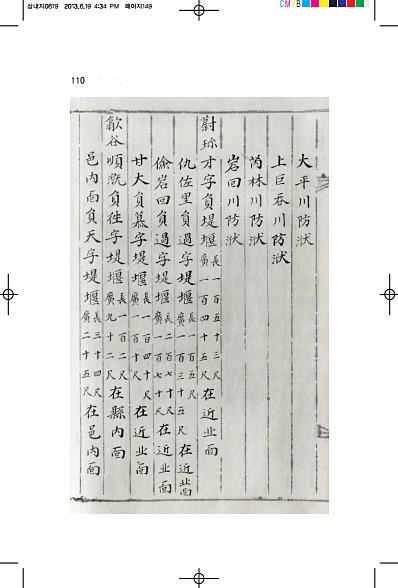 삼내지0619 2013.6.19 4:34 PM 페이지149
CMYB
110
大平川防洑
上巨呑川防洑
芮林川防洑
岩回川防洑
蔚珍才字員堤堰長一百五十三尺廣一百四十五尺在近北面
仇佐里員過字堤堰長一百五尺廣一百三十五尺在近北面
儉岩回員過字堤堰長二百七十尺廣一百七十尺在近北面
甘大員慕字堤堰長一百四十尺廣一百十尺在近北面
歙谷順漑員徃字堤堰長一百二尺廣九十二尺在縣內面
邑內面員天字堤堰長三十四尺廣二十五尺在邑內面